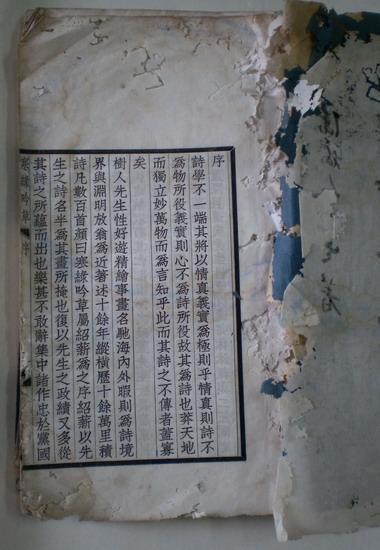 序
詩學不一端其將以情真義實為極則乎情真則詩不
為物所役義實則心不為詩所役故其為詩也莽天地
而獨立妙萬物而為言知乎此而其詩之不傳者蓋寡
矣
樹人先生性好遊精繪事畫名馳海內外暇則為詩境
界與淵明放翁為近著述十餘年縱橫歷十餘萬里積
詩凡數百首顏曰寒綠吟草屬紹薪為之序紹薪以先
生之詩名半為其畫所掩也復以先生之政績又多從
其詩之所蘊而出也樂甚不敢辭集中諸作忠於黨國
寒綠吟草 序